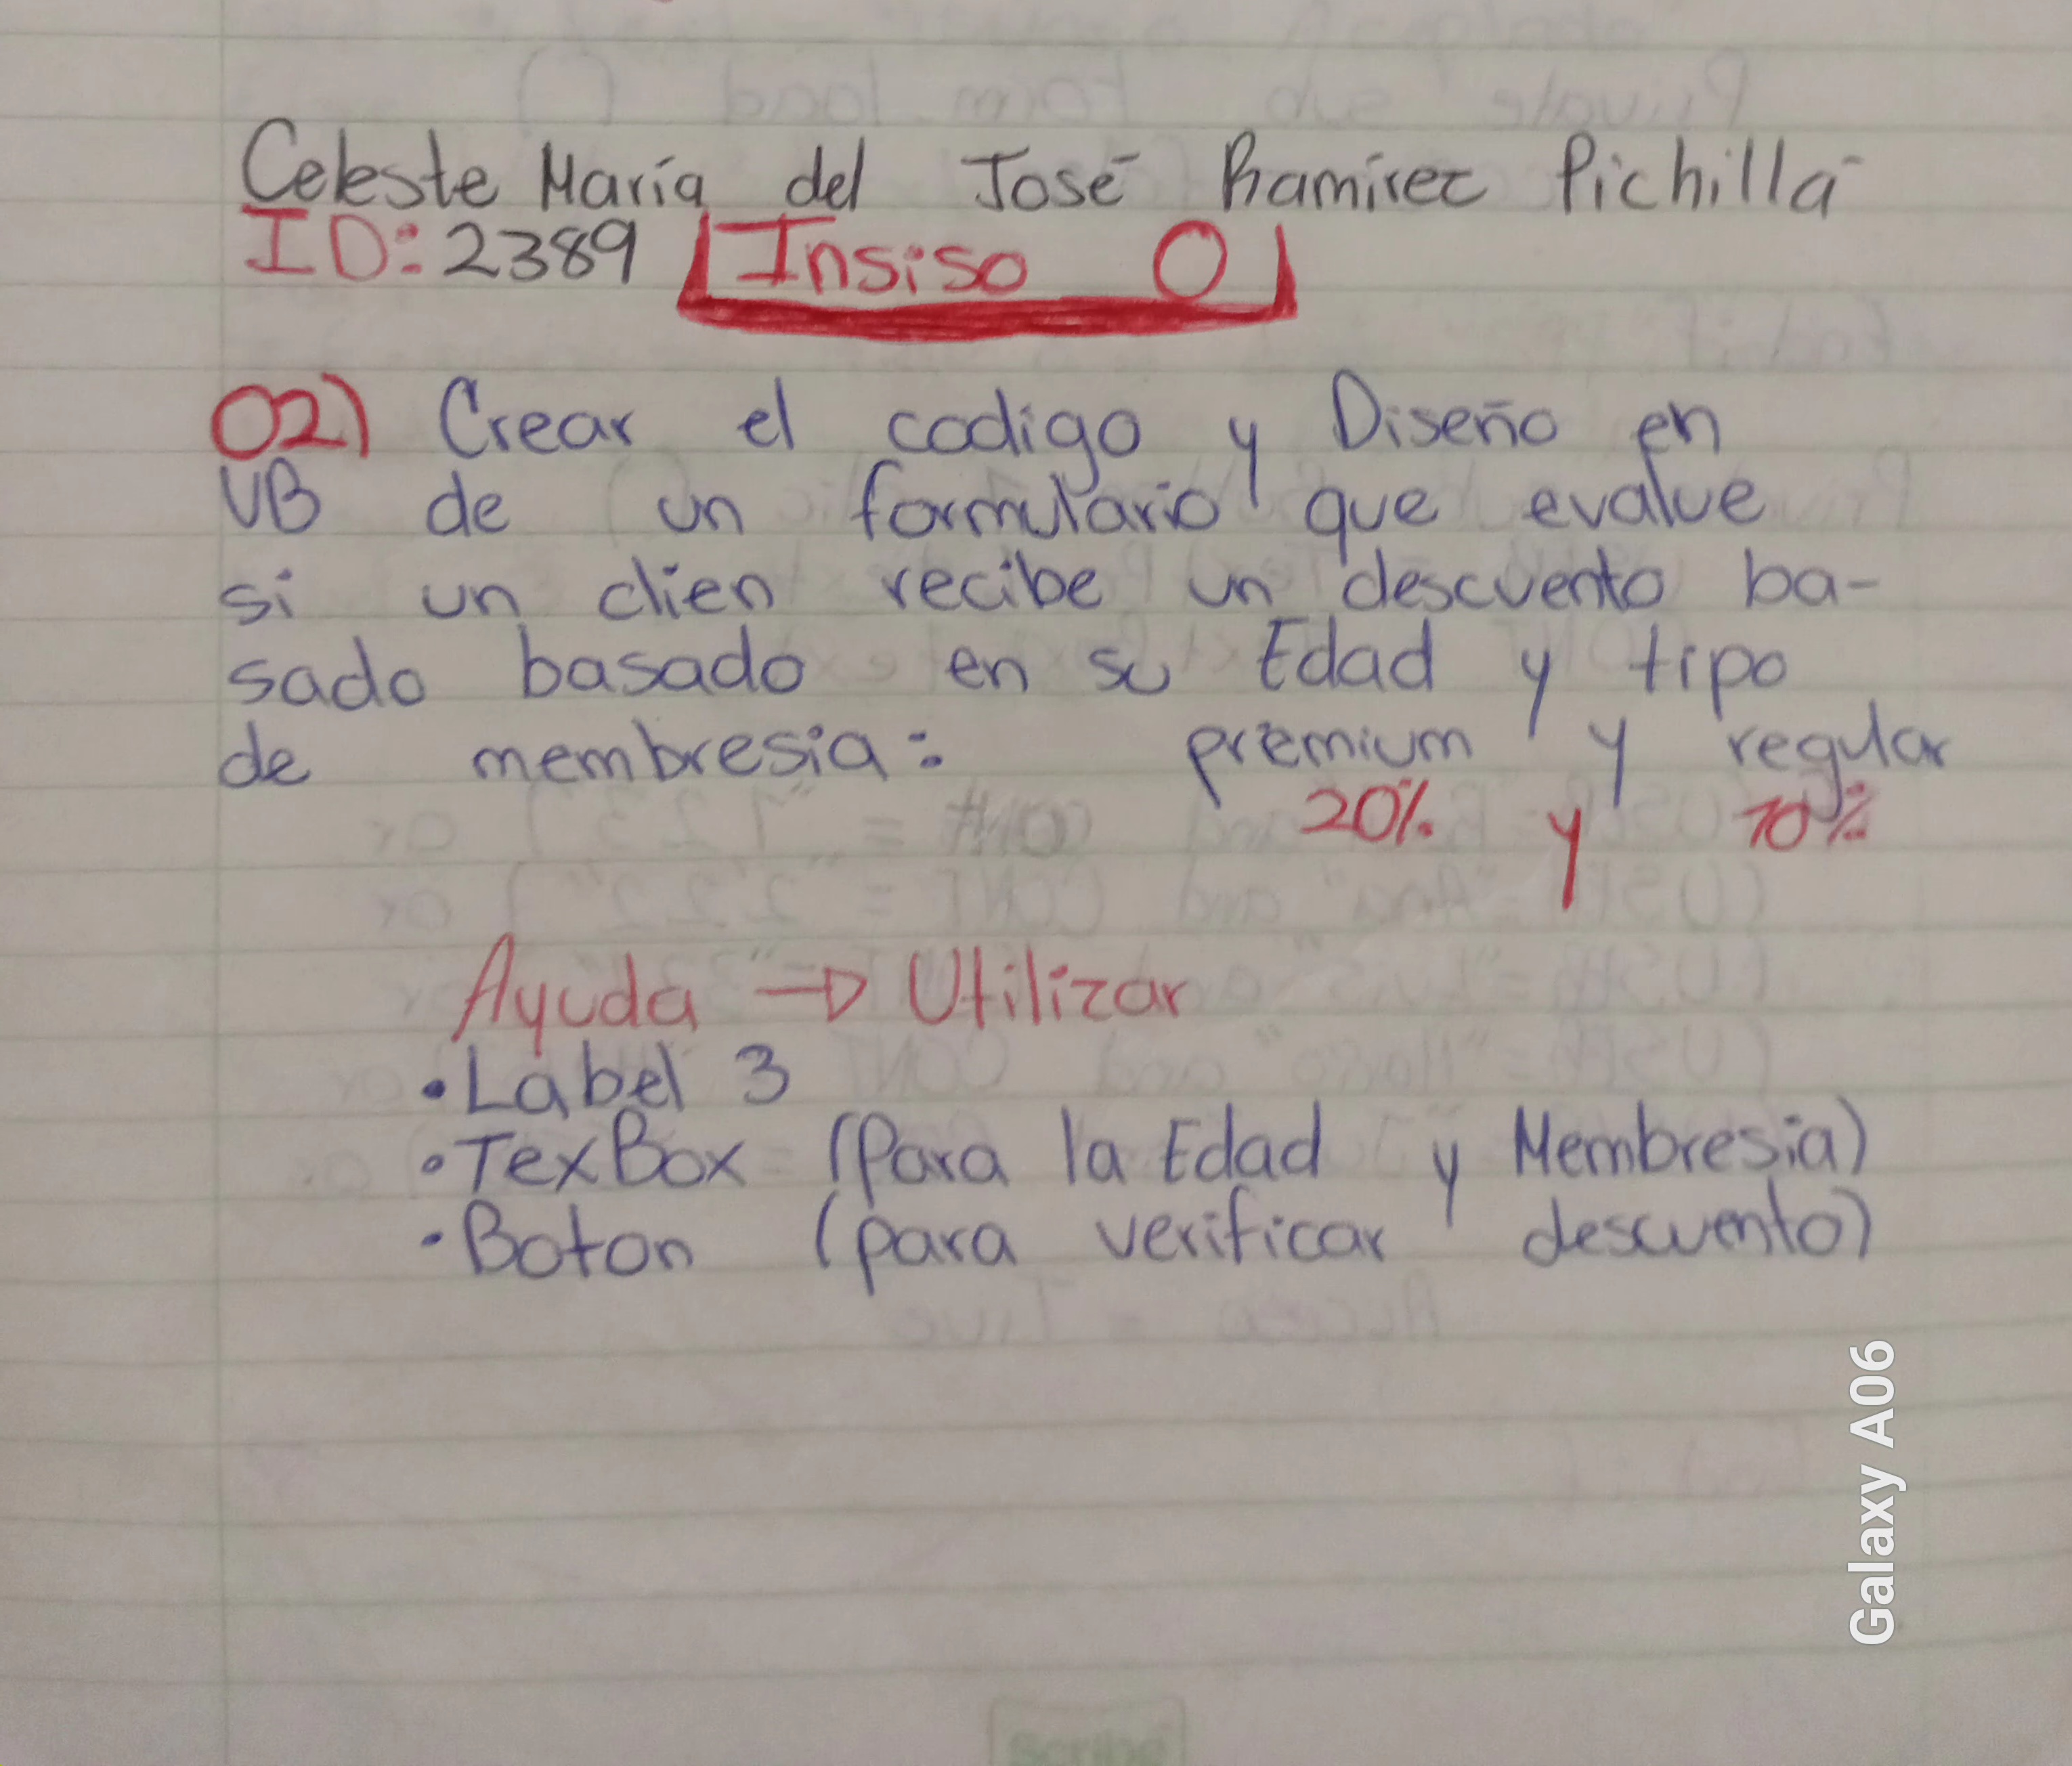 Celeste María del José Ramírez Pichillá
ID: 2389 Insiso O
O2) Crear el codigo y Diseño en
VB de un formulario que evalue
si un clien recibe un descuento ba-
sado basado en su Edad y tipo
de membresia: premium y regular
20% y 10%
Ayuda → Utilizar
• Label 3
• TexBox (Para la Edad y Membresia)
• Boton (para verificar descuento)
Galaxy A06
Scribe